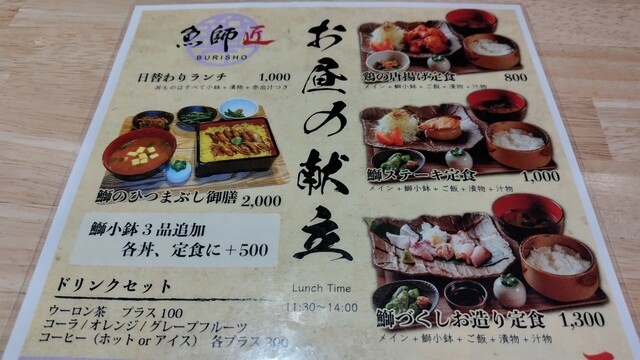 魚師匠
BURISHO
お昼の献立
日替わりランチ 1,000
丼ものはすべて小鉢+漬物+赤出汁つき
鰤のひつまぶし御膳 2,000
鰤小鉢3品追加
各丼、定食に+500
ドリンクセット
ウーロン茶 プラス100
コーラ/オレンジ/グレープフルーツ
コーヒー(ホット or アイス) 各プラス200
Lunch Time
11:30〜14:00
鶏の唐揚げ定食 800
メイン+鰤小鉢+ご飯+漬物+汁物
鰤ステーキ定食 1,000
メイン+鰤小鉢+ご飯+漬物+汁物
鰤づくしお造り定食 1,300